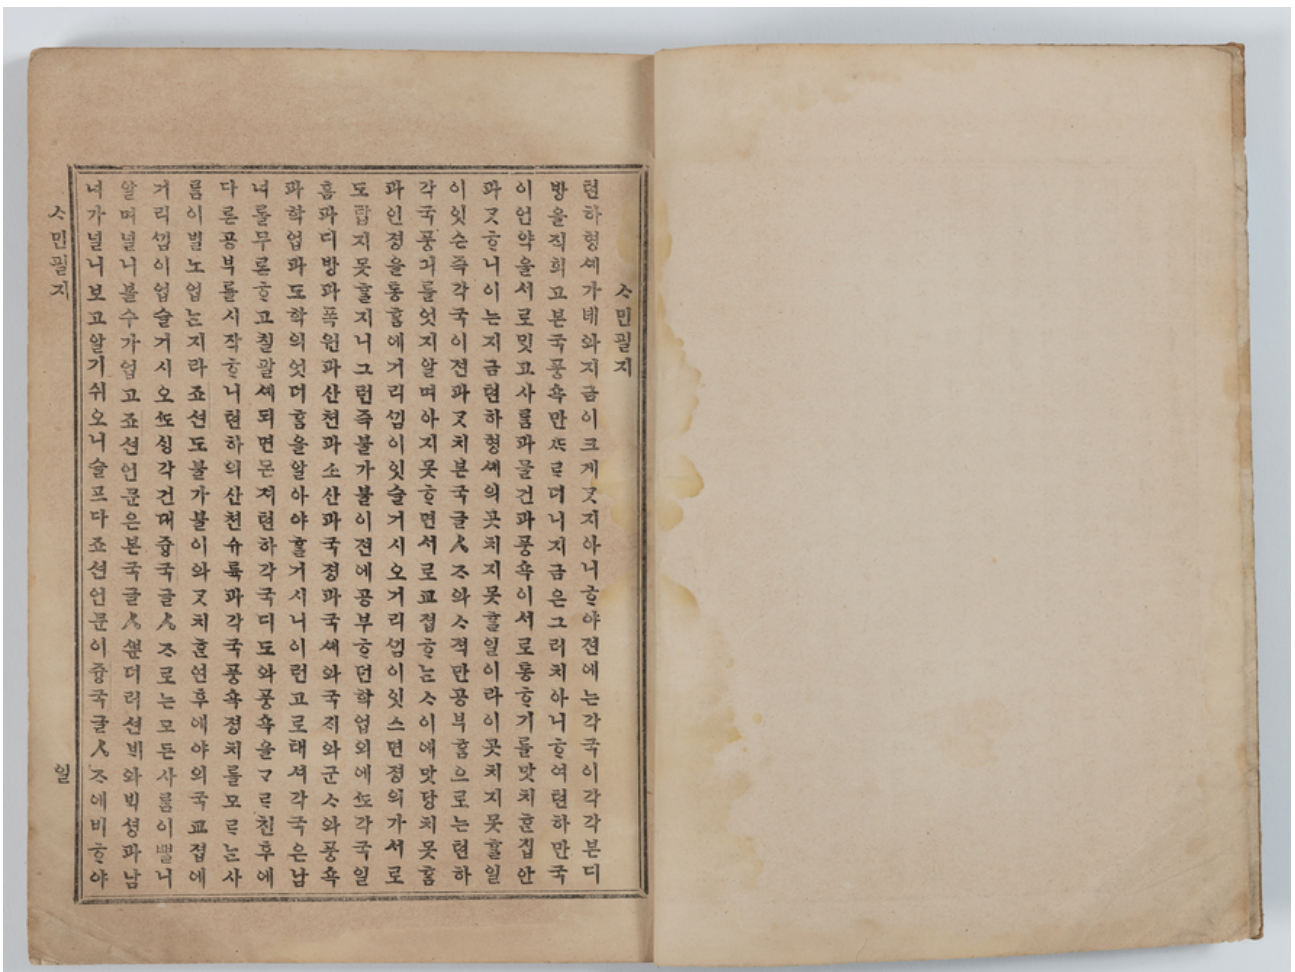 ᄉᆞ민필지
텬하형셰가녜와지금이크게ᄀᆞᆺ지아니ᄒᆞ야젼에는각국이각각본디
방을직희고본국풍쇽만ᄯᆞᄅᆞ더니지금은그러치아니ᄒᆞ여텬하만국
이언약을서로밋고사ᄅᆞᆷ과물건과풍쇽이서로통ᄒᆞ기를맛치ᄒᆞᆫ집안
과ᄀᆞᆺᄒᆞ니이는지금텬하형셰의곳치지못ᄒᆞᆯ일이라이곳치지못ᄒᆞᆯ일
이잇슨즉각국이젼과ᄀᆞᆺ치본국글ㅅᄌᆞ와ᄉᆞ젹만공부ᄒᆞᆷ으로는텬하
각국풍긔를엇지알며아지못ᄒᆞ면서로교졉ᄒᆞᄂᆞᆫᄉᆞ이에맛당치못ᄒᆞᆷ
과인졍을통ᄒᆞᆷ에거리낌이잇슬거시오거리낌이잇스면졍의가서로
도탑지못ᄒᆞᆯ지니그런즉불가불이젼에공부ᄒᆞ던학업외에ᄯᅩ각국일
홈과디방과폭원과산쳔과소산과국졍과국셰와국ᄌᆡ와군ᄉᆞ와풍쇽
과학업과도학의엇더ᄒᆞᆷ을알아야ᄒᆞᆯ거시니이런고로태셔각국은남
녀를무론ᄒᆞ고칠팔셰되면몬져텬하각국디도와풍쇽을ᄀᆞᄅᆞ친후에
다른공부를시작ᄒᆞ니텬하의산쳔슈륙과각국풍쇽졍치를모ᄅᆞᄂᆞᆫ사
ᄅᆞᆷ이별노업ᄂᆞᆫ지라죠션도불가불이와ᄀᆞᆺ치ᄒᆞᆫ연후에야의국교졉에
거리낌이업슬거시오ᄯᅩᄉᆡᆼ각건대즁국글ㅅᄌᆞ로는모든사ᄅᆞᆷ이ᄲᆞᆯ니
알며널니볼수가업고죠션언문은본국글ㅅᄌᆞᄲᅮᆫ더러션ᄇᆡ와ᄇᆡᆨ셩과남
녀가널니보고알기쉬오니슬프다죠션언문이즁국글ㅅᄌᆞ에비ᄒᆞ야
ᄉᆞ민필지
일